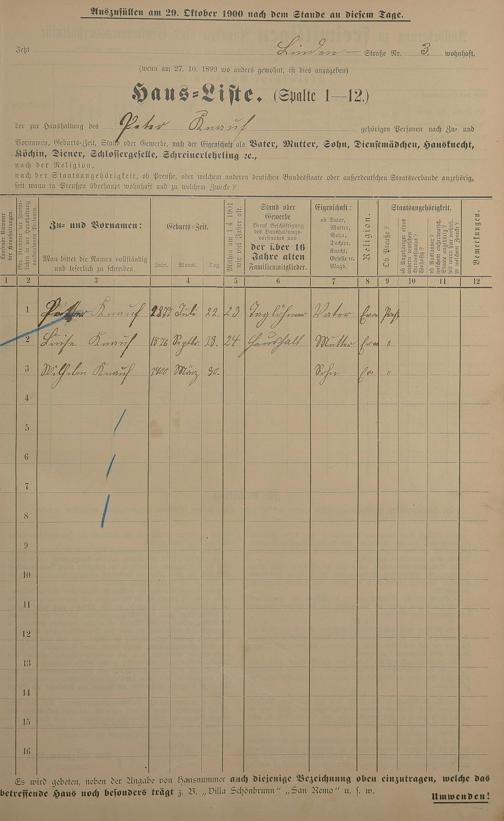 Auszufüllen am 29. Oktober 1900 nach dem Stande an diesem Tage.
Jetzt Linden- Straße Nr. 3 wohnhaft.
(wenn am 27. 10. 1899 wo anders gewohnt, ist dies anzugeben)
Haus-Liste. (Spalte 1—12.)
der zur Haushaltung des Peter Knauf gehörigen Personen nach Zu- und
Vornamen, Geburts-Zeit, Stand oder Gewerbe, nach der Eigenschaft als Vater, Mutter, Sohn, Dienstmädchen, Hausknecht,
Köchin, Diener, Schlossergeselle, Schreinerlehrling ꝛc.,
nach der Religion,
nach der Staatsangehörigkeit, ob Preuße, oder welchem anderen deutschen Bundesstaate oder außerdeutschen Staatsverbande angehörig,
seit wann in Preußen überhaupt wohnhaft und zu welchem Zwecke?
Zu- und Vornamen:
Man bittet die Namen vollständig
und leserlich zu schreiben.
Geburts-Zeit.
Jahr. Monat. Tag.
Stand oder
Gewerbe
der über 16
Jahre alten
Familienmitglieder.
Eigenschaft:
ob Vater,
Mutter,
Sohn,
Tochter,
Knecht,
Geselle u.
Magd.
Religion.
Staatsangehörigkeit.
Ob Preuße?
Bemerkungen.
1 2 3 4 5 6 7 8 9 10 11 12
1 Peter Knauf Juli 22. 23 Taglöhner Vater
2 Luise Knauf 1876 Septbr. 13. 24 Haushalt Mutter "
3 Wilhelm Knauf 1900 März 30. Sohn "
4
5
6
7
8
9
10
11
12
13
14
15
16
Es wird gebeten, neben der Angabe von Hausnummer auch diejenige Bezeichnung oben einzutragen, welche das
betreffende Haus noch besonders trägt z. B. „Villa Schönbrunn" „San Remo" u. s. w.
Umwenden!